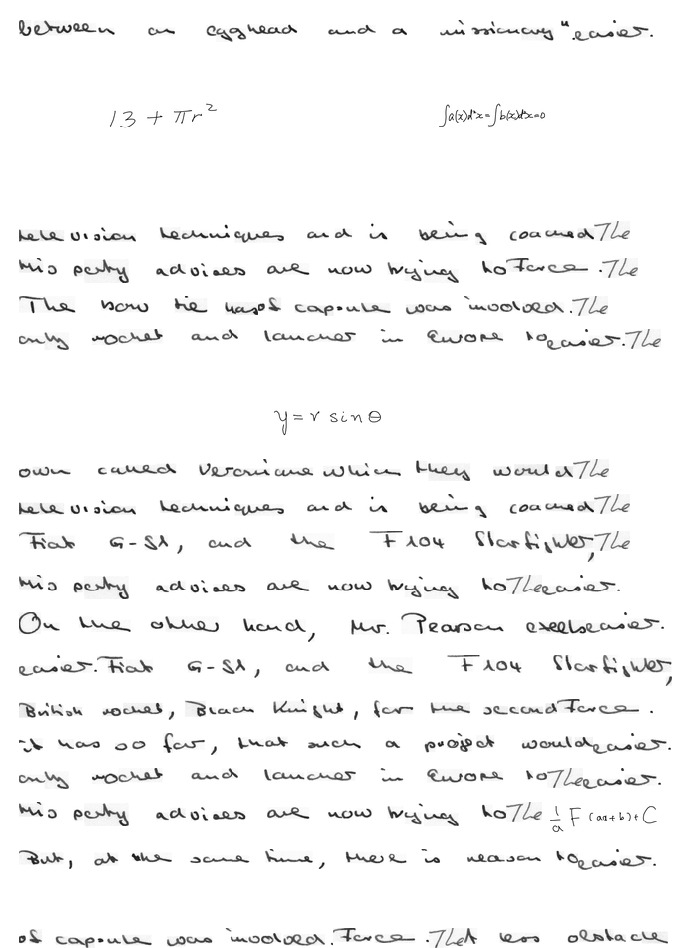 between an egghead and a missionary" easier.
13 + πr²
∫a(x)dⁿx = ∫b(x)dⁿx = 0
television techniques and is being coached The
His party advises are now trying to Force . The
The bow tie has of capsule was involved. The
only rocket and launcher in Europe to easier. The
y = r sin θ
own called Veronique which they would The
television techniques and is being coached The
Fiat G-91, and the F104 Starfighter, The
His party advises are now trying to The easier.
On the other hand, Mr. Pearson excels easier.
easier. Fiat G-91, and the F104 Starfighter,
British rocket, Black Knight, for the second Force .
it has so far, that such a project would easier.
only rocket and launcher in Europe to The easier.
His party advises are now trying to The 1/a F (ax+b) + C
But, at the same time, there is reason to easier.
of capsule was involved. Force . That less obstacle